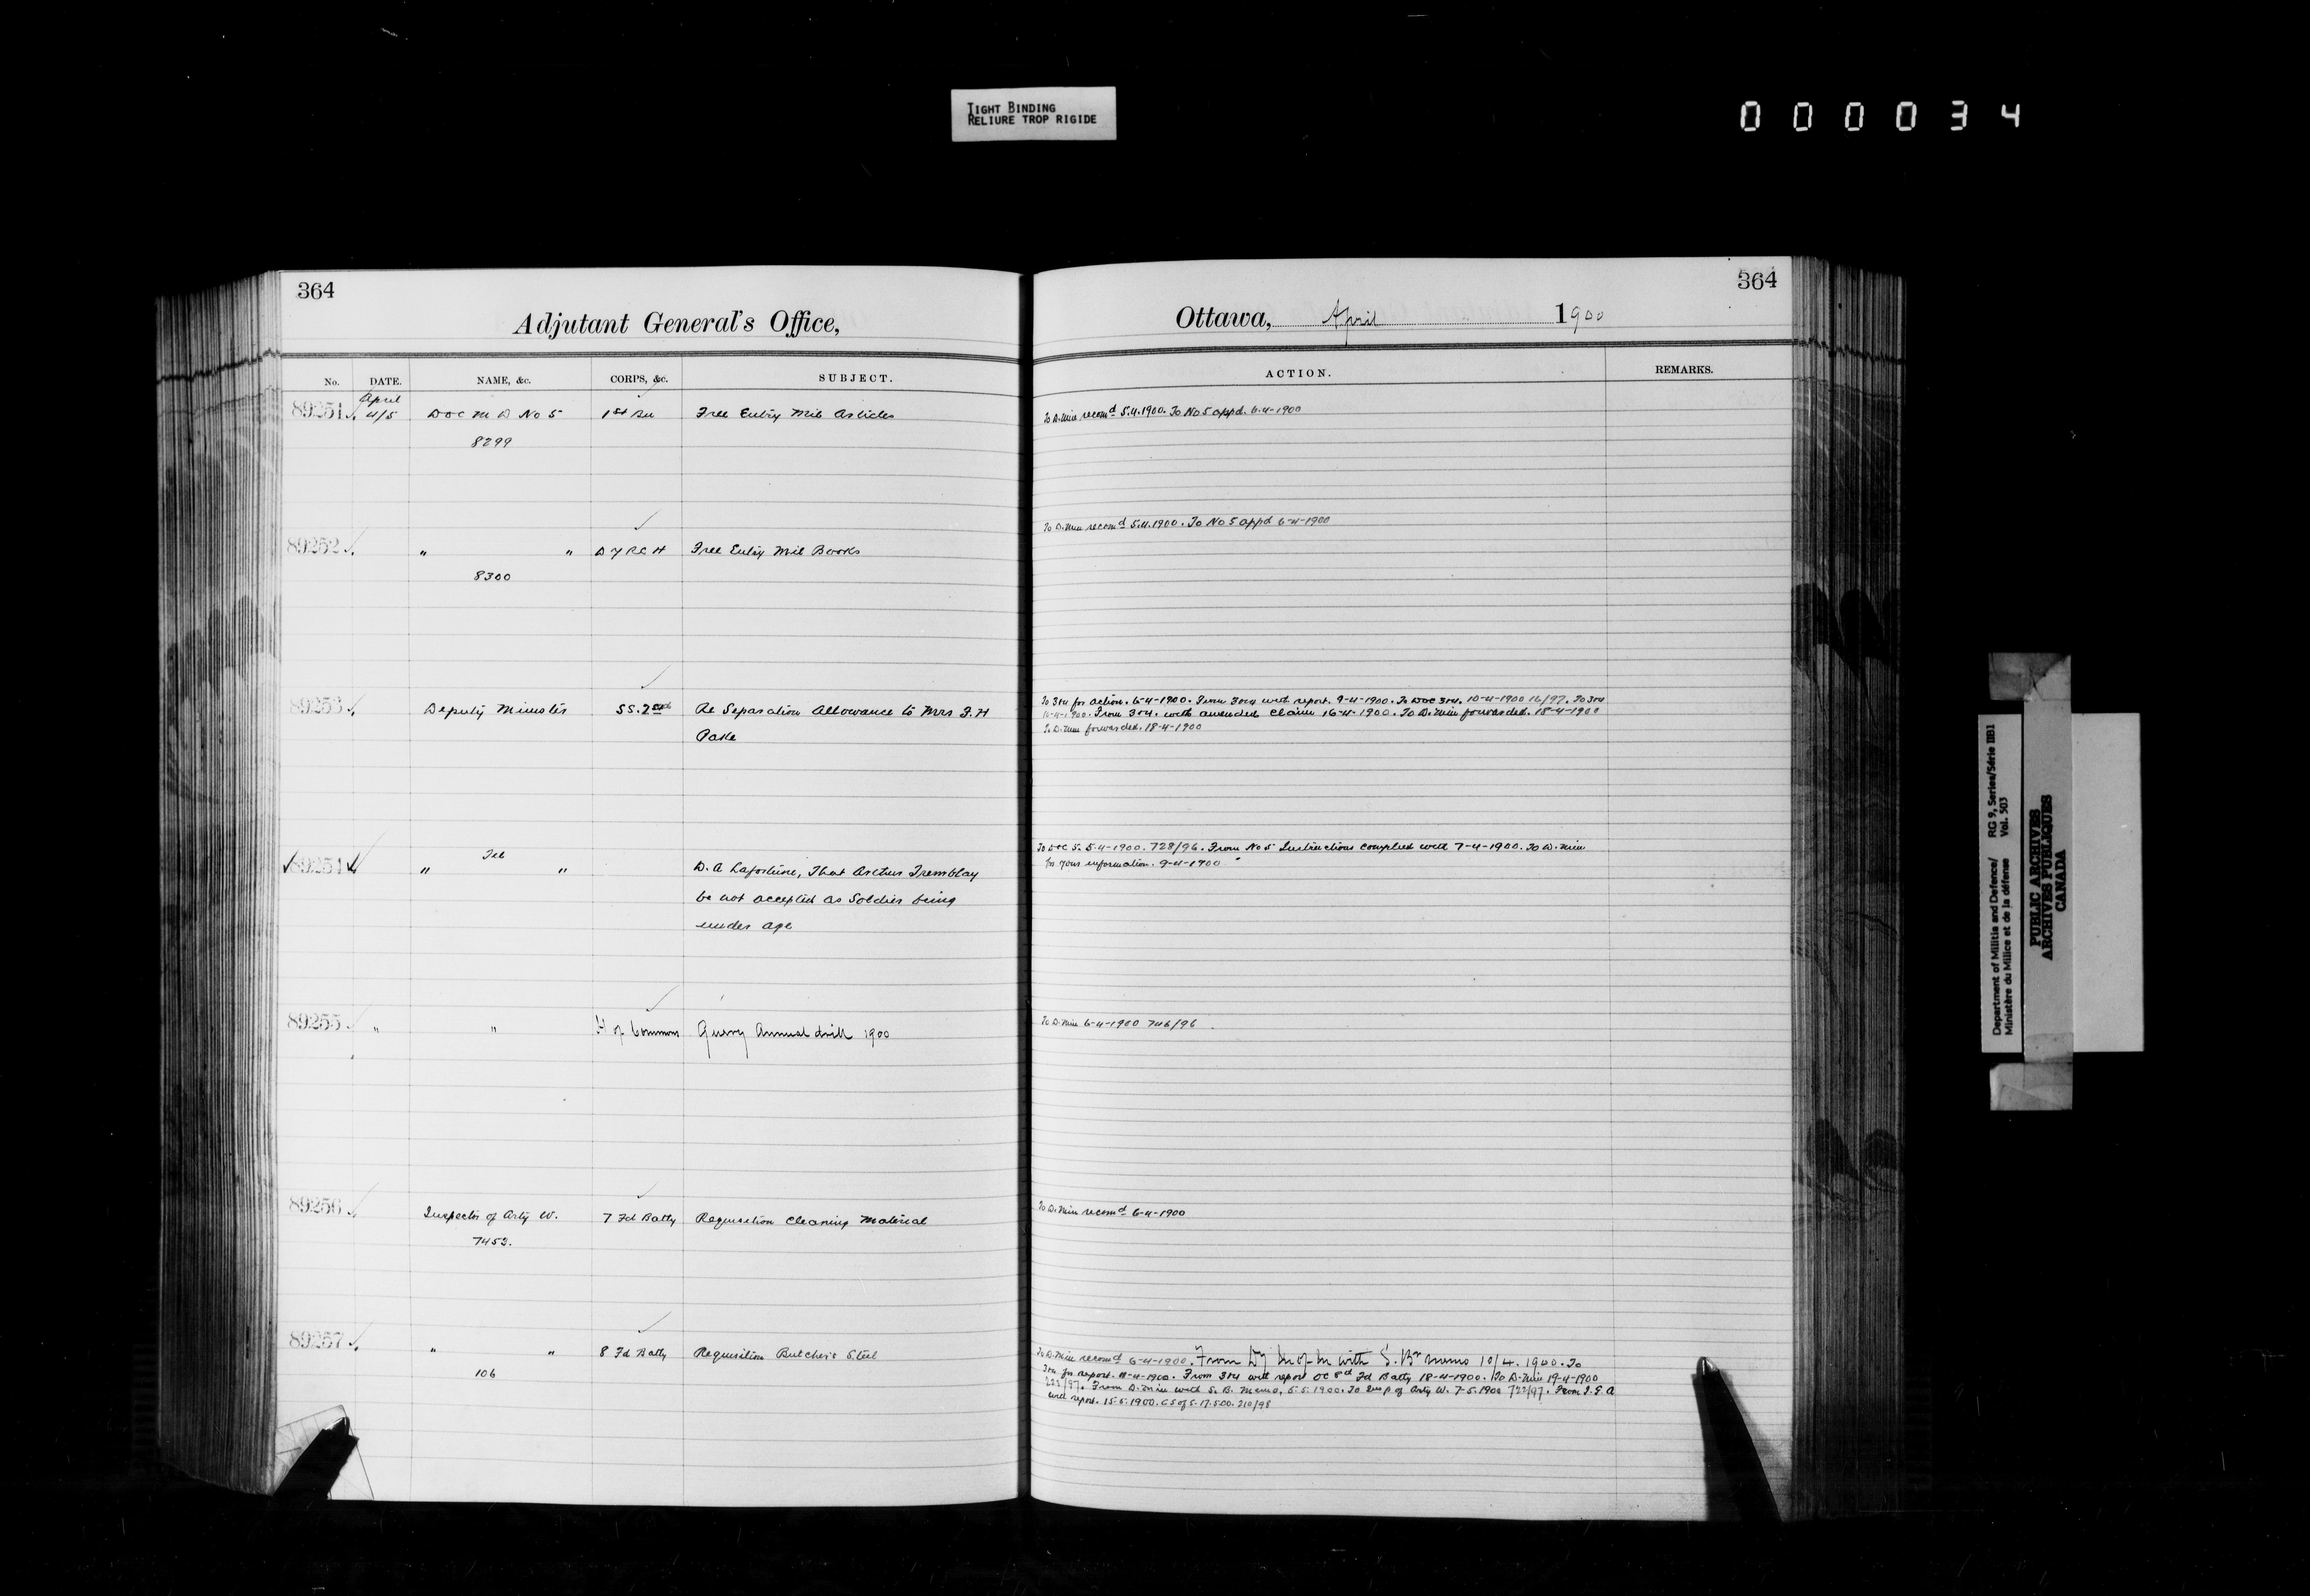 TIGHT BINDING
RELIURE TROP RIGIDE
000034
364
Adjutant General's Office,
No. DATE. NAME, &c. CORPS, &c. SUBJECT.
April
89251 4/5 DOC M D No 5 1st Free Entry Mil Articles
8299
89252 " " D Y R C H Free Entry Mil Books
8300
89253 Deputy Minister SS. 2nd Re Separation Allowance to Mrs F. H
Pake
Tel
89254 " " D. A Lafortune, That Arthur Tremblay
be not accepted as Soldier being
under age
89255 " " H of Commons Query Annual drill 1900
89256 Inspector of Arty W. 7 Fd Batty Requisition Cleaning Material
7453.
89257 " " 8 Fd Batty Requisition Butchers Steel
106
364
Ottawa, April 1900
ACTION. REMARKS.
To D. Min recomd 5.4.1900. To No 5 appd. 6-4-1900
To D. Min recomd 5.4.1900. To No 5 appd 6-4-1900
To 3&4 for action. 6-4-1900. From 3&4 with report. 9-4-1900. To DOC 3&4. 10-4-1900 16/97. To 3&4
10-4-1900. From 3&4. with amended claim 16-4-1900. To D. Min forwarded. 18-4-1900
To D. Min forwarded. 18-4-1900
To DOC 5. 5-4-1900. 728/96. From No 5 Instructions complied with 7-4-1900. To D. Min
for your information. 9-4-1900
To D. Min 6-4-1900 746/96
To D. Min recomd 6-4-1900
To D. Min recomd 6-4-1900. From Dy M of M with S. Br memo 10/4. 1900. To
3&4 for report. 11-4-1900. From 3&4 with report OC 8th Fd Batty 18-4-1900. To D. Min 19-4-1900
222/97. From D. Min with S. B. Memo, 5.5.1900. To Insp of Arty W. 7-5-1900 722/97. From I. F. A
with report. 15.5.1900. C S of S. 17.5.00. 210/98
Department of Militia and Defence/ RG 9, Series/Série IIB1
Ministère du Milice et de la défense Vol. 503
PUBLIC ARCHIVES
ARCHIVES PUBLIQUES
CANADA